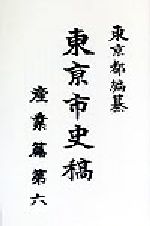 東京都編纂
東京市史稿
產業篇第六